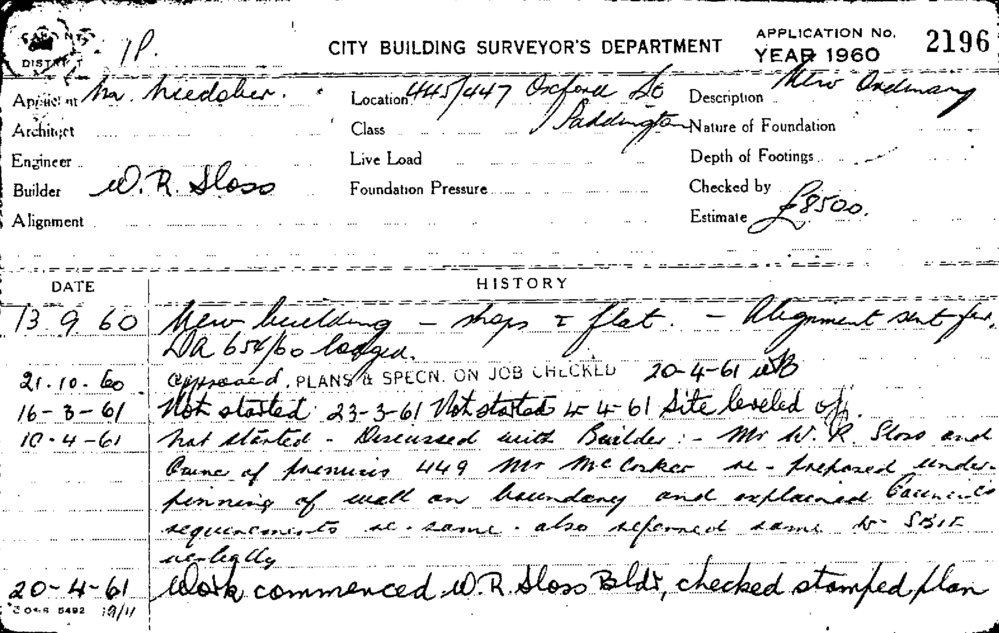 1P.
CITY BUILDING SURVEYOR'S DEPARTMENT
APPLICATION No. 2196
YEAR 1960
Applicant Mr. Location 445/447 Oxford St Description New Ordinary
Architect Class Paddington Nature of Foundation
Engineer Live Load Depth of Footings
Builder W. R. Sloss Foundation Pressure Checked by
Alignment Estimate £8500.
DATE HISTORY
13 9 60 New building - shops & flat. - Alignment sent for,
DA 654/60 lodged.
21-10-60 approved. PLANS & SPECN. ON JOB CHECKED 20-4-61
16-3-61 Not started 23-3-61 Not started 4-4-61 Site leveled off.
10-4-61 Not started - Discussed with Builder :- Mr W. R. Sloss and
Owner of premises 449 Mr re-proposed under-
pinning of wall on boundary and explained Council's
requirements re-same. also referred same to
verbally
20-4-61 Work commenced W.R. Sloss Bldr, checked stamped plan
5492 19/11